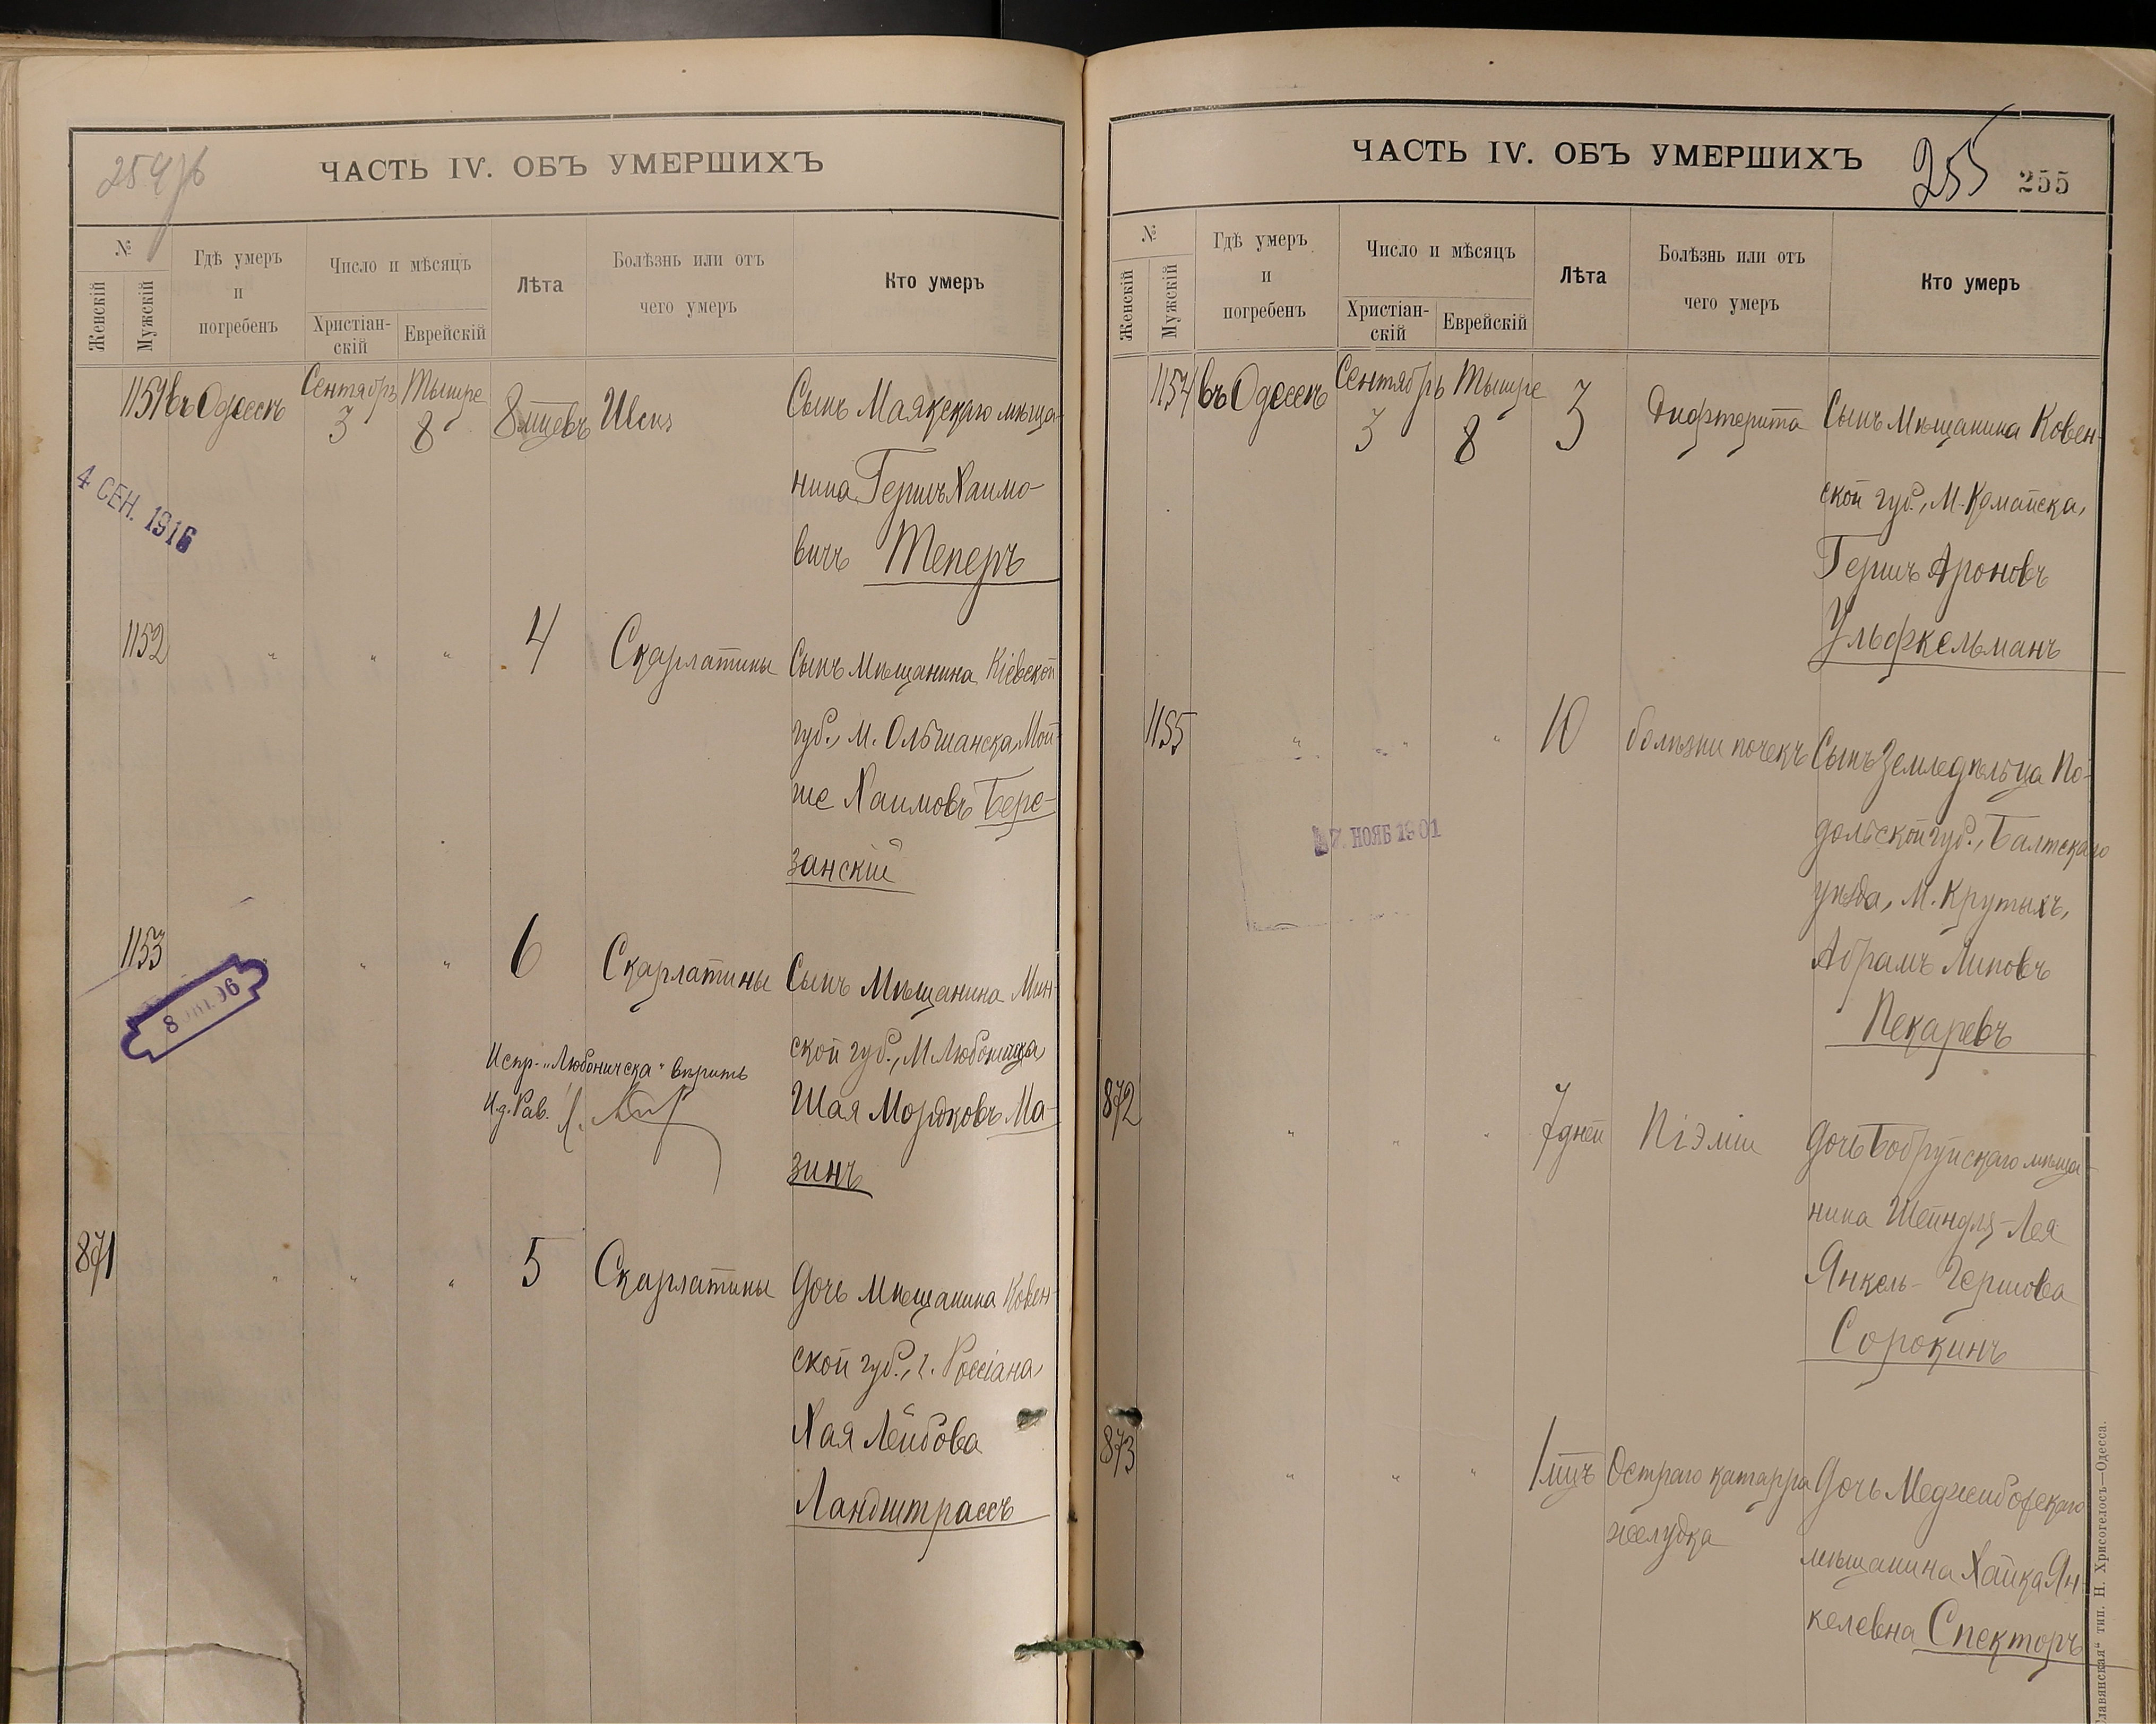 254 об
ЧАСТЬ IV. ОБЪ УМЕРШИХЪ
№
Женскій
Мужскій
Гдѣ умеръ
и
погребенъ
Число и мѣсяцъ
Христіан-
скій
Еврейскій
Лѣта
Болѣзнь или отъ
чего умеръ
Кто умеръ
1151 въ Одессѣ Сентябрь 3 Тышре 8 8 мцевъ Сынъ Маякскаго мѣща-
нина Гершъ Хаимо-
вичъ Теперъ
4 СЕН. 1916
1152 " " " 4 Скарлатины Сынъ мѣщанина Кіевской
губ., м. Ольшанска, Мой-
ше Хаимовъ Бере-
занскій
1153 " " 6 Скарлатины Сынъ Мѣщанина Мин-
ской губ., М. Любоничска,
Шая Мордковъ Ма-
зинъ
Испр. "Любоничска" вѣрить
И.д. Рав.
871 " " " 5 Скарлатины Дочь мѣщанина Ковен-
ской губ., г. Россіана,
Хая Лейбова
Ландштрассъ
ЧАСТЬ IV. ОБЪ УМЕРШИХЪ
255
255
№
Женскій
Мужскій
Гдѣ умеръ
и
погребенъ
Число и мѣсяцъ
Христіан-
скій
Еврейскій
Лѣта
Болѣзнь или отъ
чего умеръ
Кто умеръ
1154 въ Одессѣ Сентябрь 3 Тышре 8 3 Дифтерита Сынъ Мѣщанина Ковен-
ской губ., М. Комайска,
Гершъ Ароновъ
Ульфкельманъ
1155 " " " 10 болѣзни почекъ Сынъ Земледѣльца По-
дольской губ., Балтскаго
уѣзда, М. Крутыхъ,
Абрамъ Липовъ
Пекаревъ
НОЯБ 1901
872 " " " 7 дней Піэміи Дочь Бобруйскаго мѣща-
нина Шейндля-Лея
Янкель-Гершова
Сорокинъ
873 " " " 1 мцъ Остраго катарра Дочь Меджибожскаго
желудка
мѣщанина Хайка Ян-
келевна Спекторъ
Славянская" тип. Н. Хрисогелосъ—Одесса.